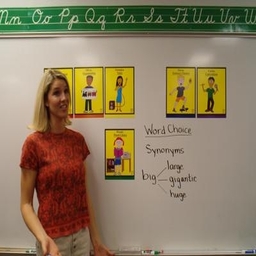 Nn Oo Pp Qq Rr Ss Tt Uu Vv W
Word Choice
Synonyms
large
big gigantic
huge